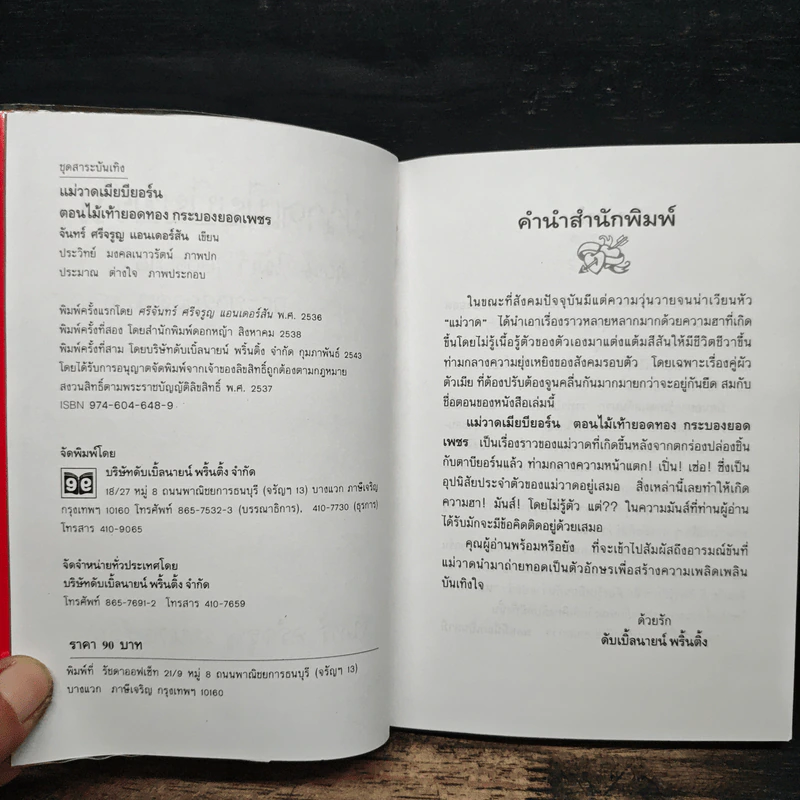 ชุดสาระบันเทิง
แม่วาดเมียบียอร์น
ตอนไม้เท้ายอดทอง กระบองยอดเพชร
จันทร์ ศรีจรูญ แอนเดอร์สัน เขียน
ประวิทย์ มงคลเนาวรัตน์ ภาพปก
ประมาณ ต่างใจ ภาพประกอบ
พิมพ์ครั้งแรกโดย ศรีจันทร์ ศรีจรูญ แอนเดอร์สัน พ.ศ. 2536
พิมพ์ครั้งที่สอง โดยสำนักพิมพ์ดอกหญ้า สิงหาคม 2538
พิมพ์ครั้งที่สาม โดยบริษัทดับเบิ้ลนายน์ พริ้นติ้ง จำกัด กุมภาพันธ์ 2543
โดยได้รับการอนุญาตจัดพิมพ์จากเจ้าของลิขสิทธิ์ถูกต้องตามกฎหมาย
สงวนสิทธิ์ตามพระราชบัญญัติลิขสิทธิ์ พ.ศ. 2537
ISBN 974-604-648-9
จัดพิมพ์โดย
บริษัทดับเบิ้ลนายน์ พริ้นติ้ง จำกัด
18/27 หมู่ 8 ถนนพาณิชยการธนบุรี (จรัญฯ 13) บางแวก ภาษีเจริญ
กรุงเทพฯ 10160 โทรศัพท์ 865-7532-3 (บรรณาธิการ). 410-7730 (ธุรการ)
โทรสาร 410-9065
จัดจำหน่ายทั่วประเทศโดย
บริษัทดับเบิ้ลนายน์ พริ้นติ้ง จำกัด
โทรศัพท์ 865-7691-2 โทรสาร 410-7659
ราคา 90 บาท
พิมพ์ที่ รัชดาออฟเซ็ท 21/9 หมู่ 8 ถนนพาณิชยการธนบุรี (จรัญฯ 13)
บางแวก ภาษีเจริญ กรุงเทพฯ 10160
คำนำสำนักพิมพ์
ในขณะที่สังคมปัจจุบันมีแต่ความวุ่นวายจนน่าเวียนหัว
"แม่วาด" ได้นำเอาเรื่องราวหลายหลากมากด้วยความฮาที่เกิด
ขึ้นโดยไม่รู้เนื้อรู้ตัวของตัวเองมาแต่งแต้มสีสันให้มีชีวิตชีวาขึ้น
ท่ามกลางความยุ่งเหยิงของสังคมรอบตัว โดยเฉพาะเรื่องคู่ผัว
ตัวเมีย ที่ต้องปรับต้องจูนคลื่นกันมากมายกว่าจะอยู่กันยืด สมกับ
ชื่อตอนของหนังสือเล่มนี้
แม่วาดเมียบียอร์น ตอนไม้เท้ายอดทอง กระบองยอด
เพชร เป็นเรื่องราวของแม่วาดที่เกิดขึ้นหลังจากตกร่องปล่องชิ้น
กับตาบียอร์นแล้ว ท่ามกลางความหน้าแตก! เปิ่น! เซ่อ! ซึ่งเป็น
อุปนิสัยประจำตัวของแม่วาดอยู่เสมอ สิ่งเหล่านี้เลยทำให้เกิด
ความฮา! มันส์! โดยไม่รู้ตัว แต่?? ในความมันส์ที่ท่านผู้อ่าน
ได้รับมักจะมีข้อคิดติดอยู่ด้วยเสมอ
คุณผู้อ่านพร้อมหรือยัง ที่จะเข้าไปสัมผัสถึงอารมณ์ขันที่
แม่วาดนำมาถ่ายทอดเป็นตัวอักษรเพื่อสร้างความเพลิดเพลิน
บันเทิงใจ
ด้วยรัก
ดับเบิ้ลนายน์ พริ้นติ้ง